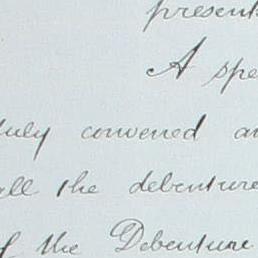 present
A spe
duly convened an
all the debenture
of the Debenture